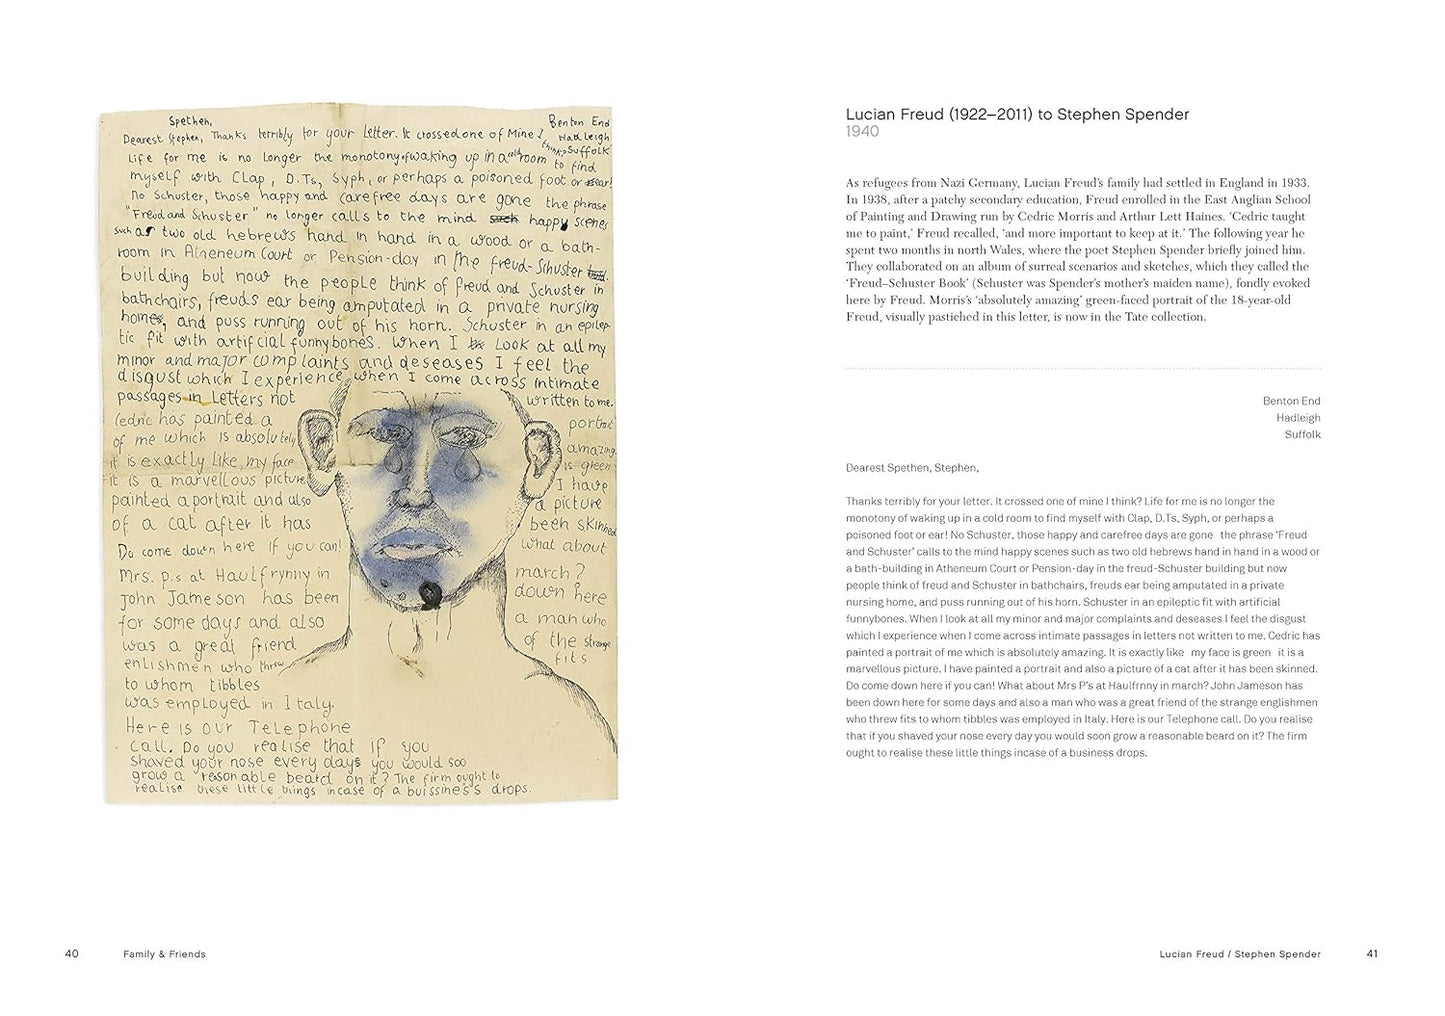 Spethen,
Benton End
Dearest Stephen, Thanks terribly for your Letter. It crossed one of Mine I
Hadleigh
think? Suffolk
Life for me is no longer the monotony of waking up in a cold room to find
myself with Clap, D.Ts, Syph, or perhaps a poisoned foot or ear!
No Schuster, those happy and carefree days are gone the phrase
"Freud and Schuster" no longer calls to the mind such happy scenes
such as two old hebrews hand in hand in a wood or a bath-
room in Atheneum Court or Pension-day in the freud-Schuster
building but now the people think of freud and Schuster in
bathchairs, freuds ear being amputated in a private nursing
home, and puss running out of his horn. Schuster in an epilep-
tic fit with artificial funnybones. When I Look at all my
minor and major complaints and deseases I feel the
disgust which I experience when I come across intimate
passages in Letters not written to me.
Cedric has painted a portrait
of me which is absolutely amazing.
it is exactly like my face is green
it is a marvellous picture I have
painted a portrait and also a picture
of a cat after it has been skinned
Do come down here if you can! what about
Mrs. p.s at Haulfrynny in march?
John Jameson has been down here
for some days and also a man who
was a great friend of the strange
enlishmen who threw fits
to whom tibbles
was employed in Italy.
Here is our Telephone
call. Do you realise that if you
shaved your nose every days you would soo
grow a reasonable beard on it? The firm ought to
realise these little things incase of a buissine's S drops.
40 Family & Friends
Lucian Freud (1922–2011) to Stephen Spender
1940
As refugees from Nazi Germany, Lucian Freud's family had settled in England in 1933.
In 1938, after a patchy secondary education, Freud enrolled in the East Anglian School
of Painting and Drawing run by Cedric Morris and Arthur Lett Haines. 'Cedric taught
me to paint,' Freud recalled, 'and more important to keep at it.' The following year he
spent two months in north Wales, where the poet Stephen Spender briefly joined him.
They collaborated on an album of surreal scenarios and sketches, which they called the
'Freud–Schuster Book' (Schuster was Spender's mother's maiden name), fondly evoked
here by Freud. Morris's 'absolutely amazing' green-faced portrait of the 18-year-old
Freud, visually pastiched in this letter, is now in the Tate collection.
Benton End
Hadleigh
Suffolk
Dearest Spethen, Stephen,
Thanks terribly for your letter. It crossed one of mine I think? Life for me is no longer the
monotony of waking up in a cold room to find myself with Clap, D.Ts, Syph, or perhaps a
poisoned foot or ear! No Schuster, those happy and carefree days are gone the phrase 'Freud
and Schuster' calls to the mind happy scenes such as two old hebrews hand in hand in a wood or
a bath-building in Atheneum Court or Pension-day in the freud-Schuster building but now
people think of freud and Schuster in bathchairs, freuds ear being amputated in a private
nursing home, and puss running out of his horn. Schuster in an epileptic fit with artificial
funnybones. When I look at all my minor and major complaints and deseases I feel the disgust
which I experience when I come across intimate passages in letters not written to me. Cedric has
painted a portrait of me which is absolutely amazing. It is exactly like my face is green it is a
marvellous picture. I have painted a portrait and also a picture of a cat after it has been skinned.
Do come down here if you can! What about Mrs P's at Haulfrnny in march? John Jameson has
been down here for some days and also a man who was a great friend of the strange englishmen
who threw fits to whom tibbles was employed in Italy. Here is our Telephone call. Do you realise
that if you shaved your nose every day you would soon grow a reasonable beard on it? The firm
ought to realise these little things incase of a business drops.
Lucian Freud / Stephen Spender 41